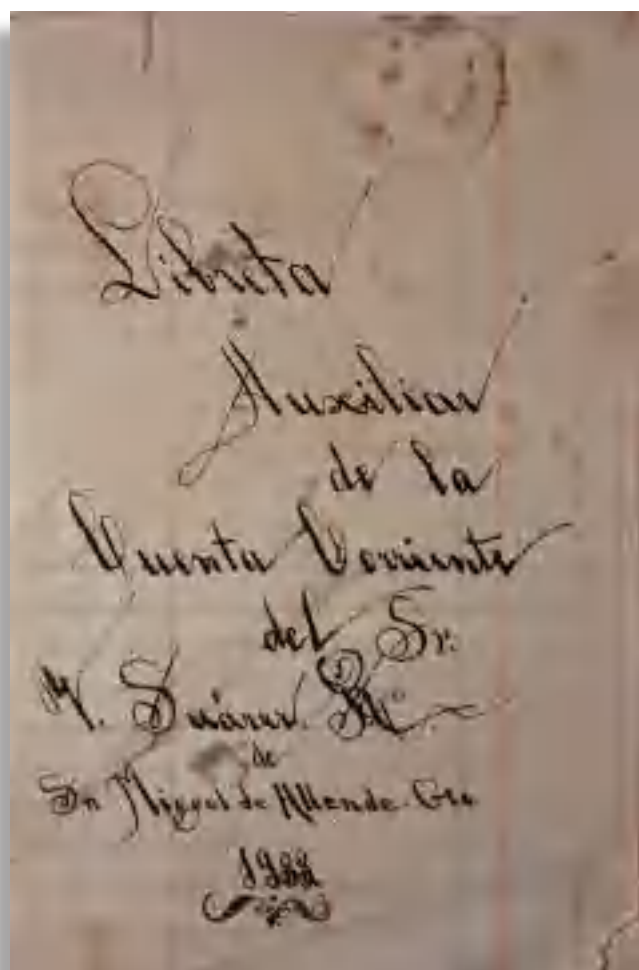 Libreta
Auxiliar
de la
Cuenta Corriente
del Sr.
Suárez
de
Sn Miguel de Allende. Gto